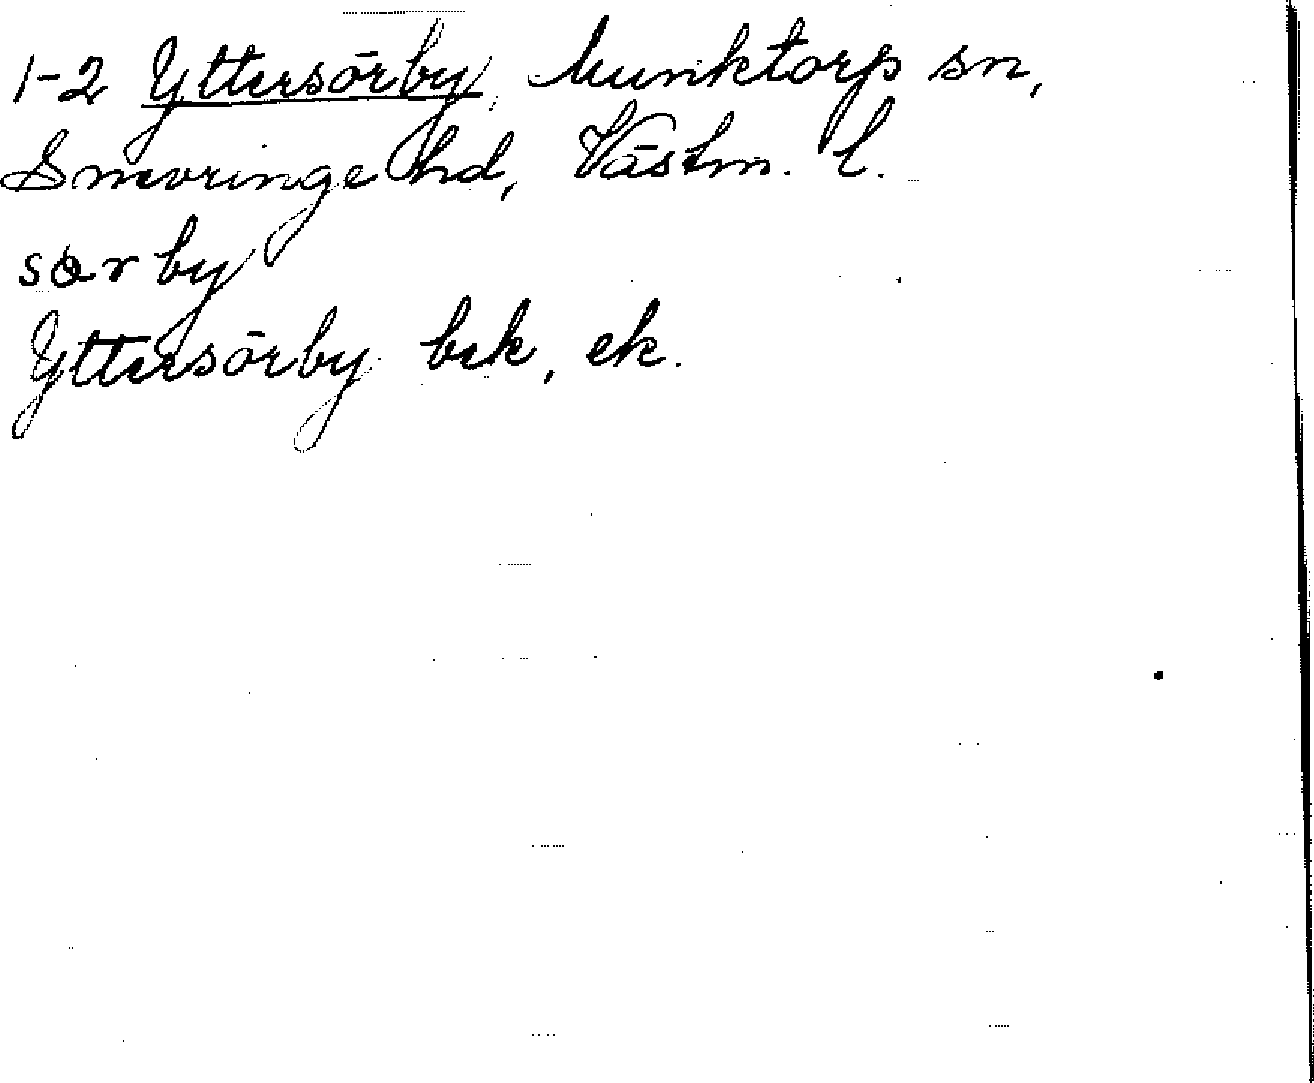 1-2 Yttersörby, Munktorp sn,
Snevringe hd, Västm. l.
sørby
Yttersörby bek, ek.